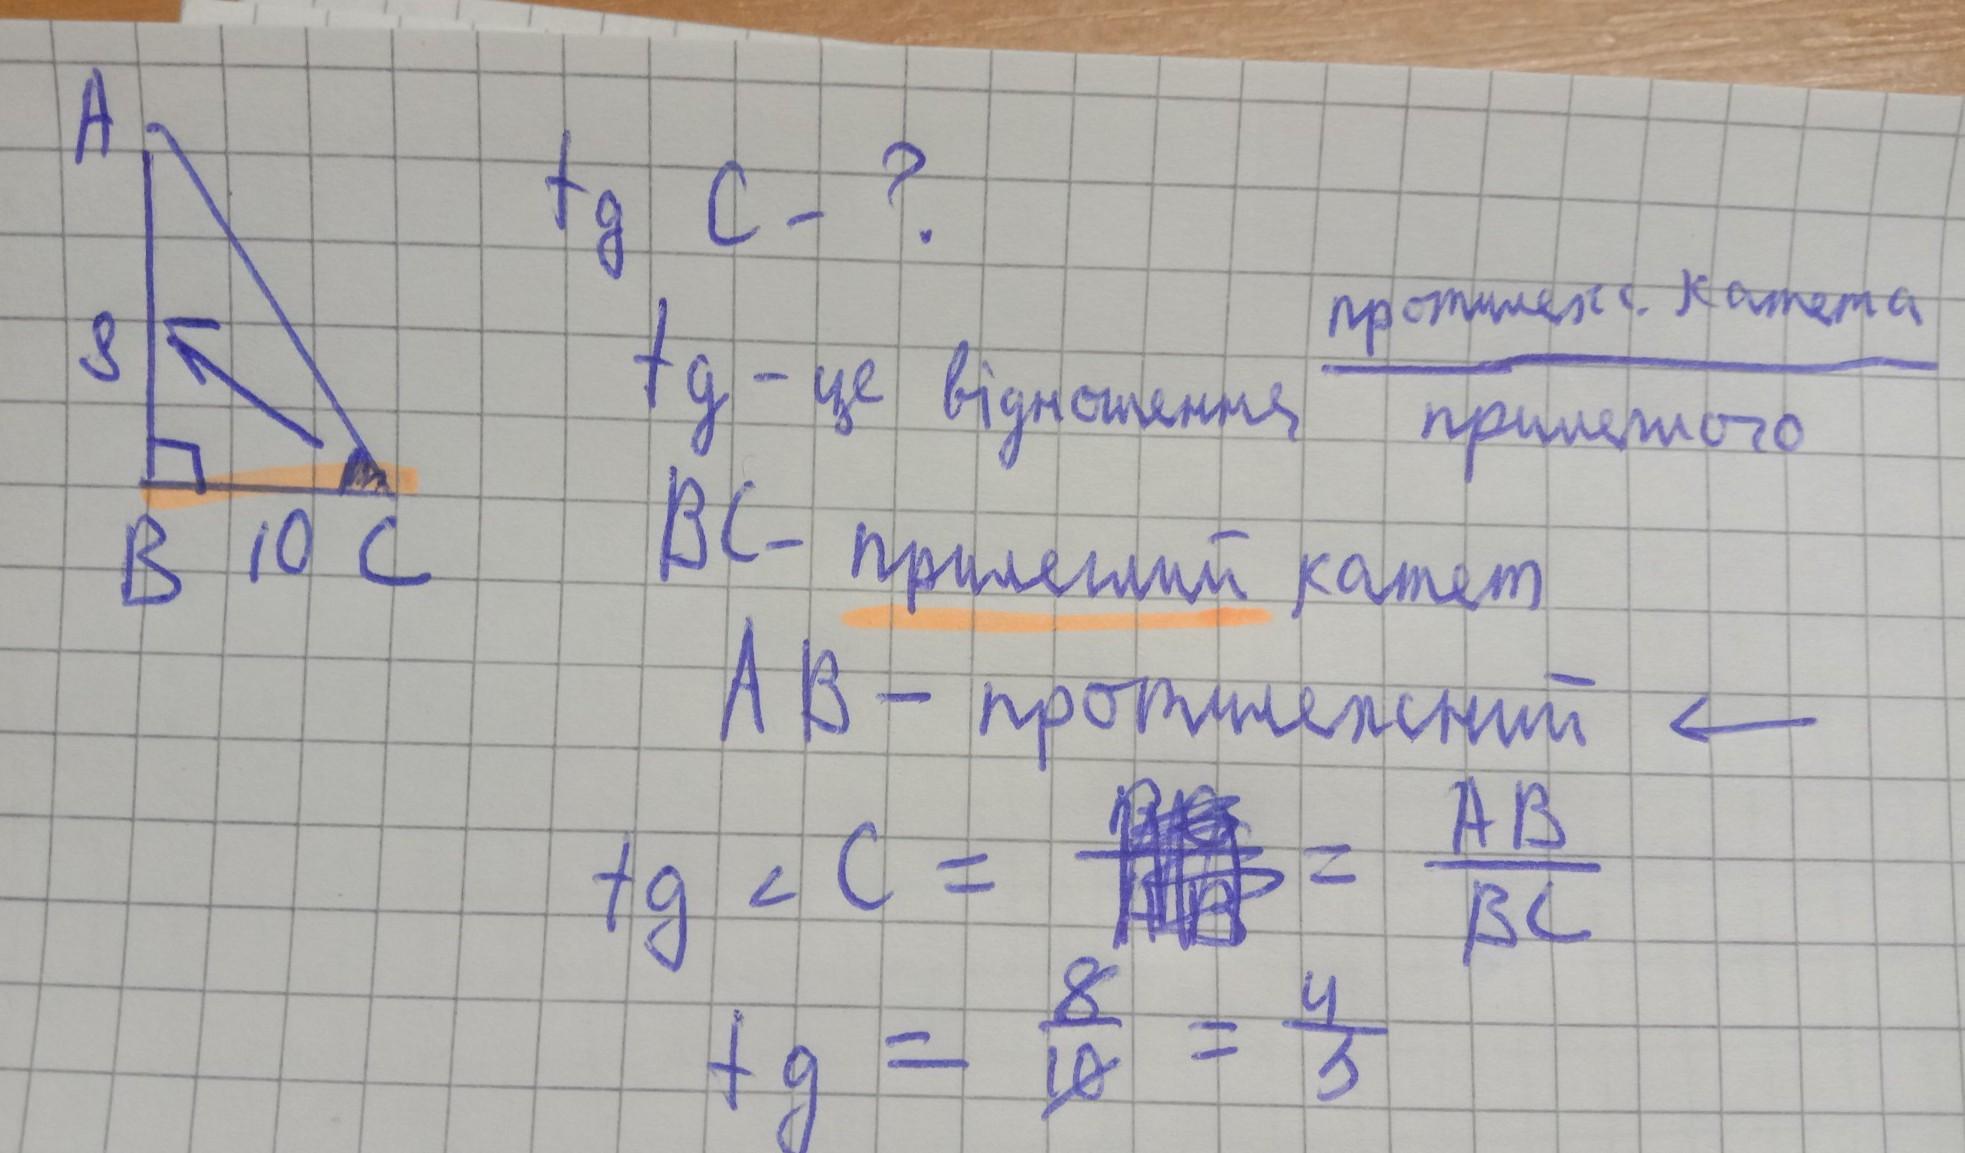 A
8
B 10 C
tg C - ?
tg - це відношення протилеж. катета / прилеглого
BC - прилеглий катет
AB - протилежний ←
tg < C = = AB / BC
tg = 8 / 10 = 4 / 5